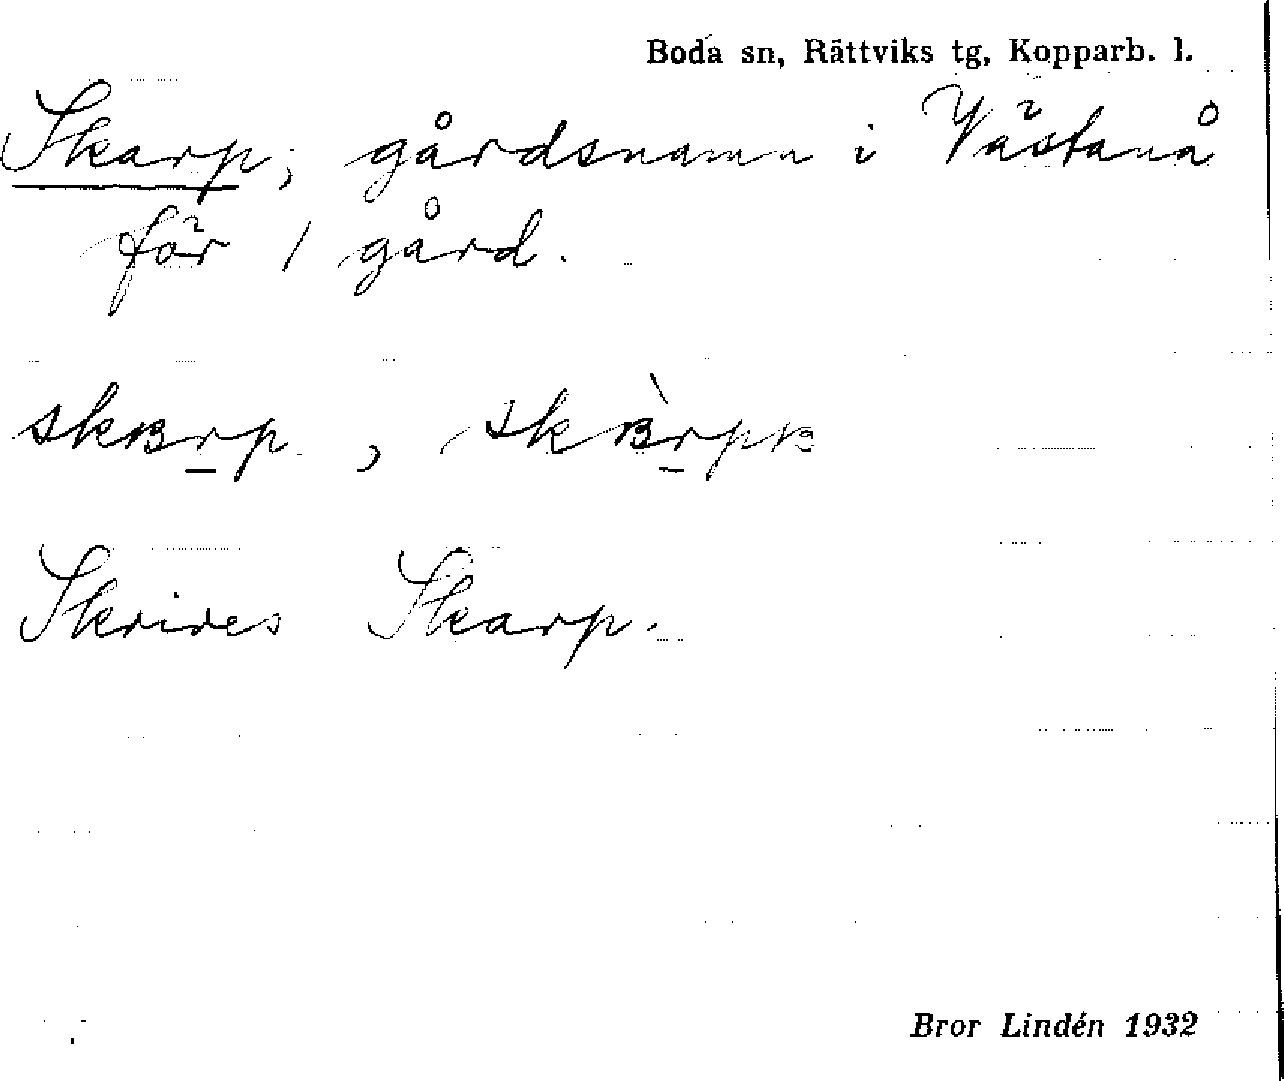 Boda sn, Rättviks tg, Kopparb. l.
Skarp, gårdsnamn i Västanå
för 1 gård.
skʙrp, skʙ̀rpʙ
Skrives Skarp.
Bror Lindén 1932